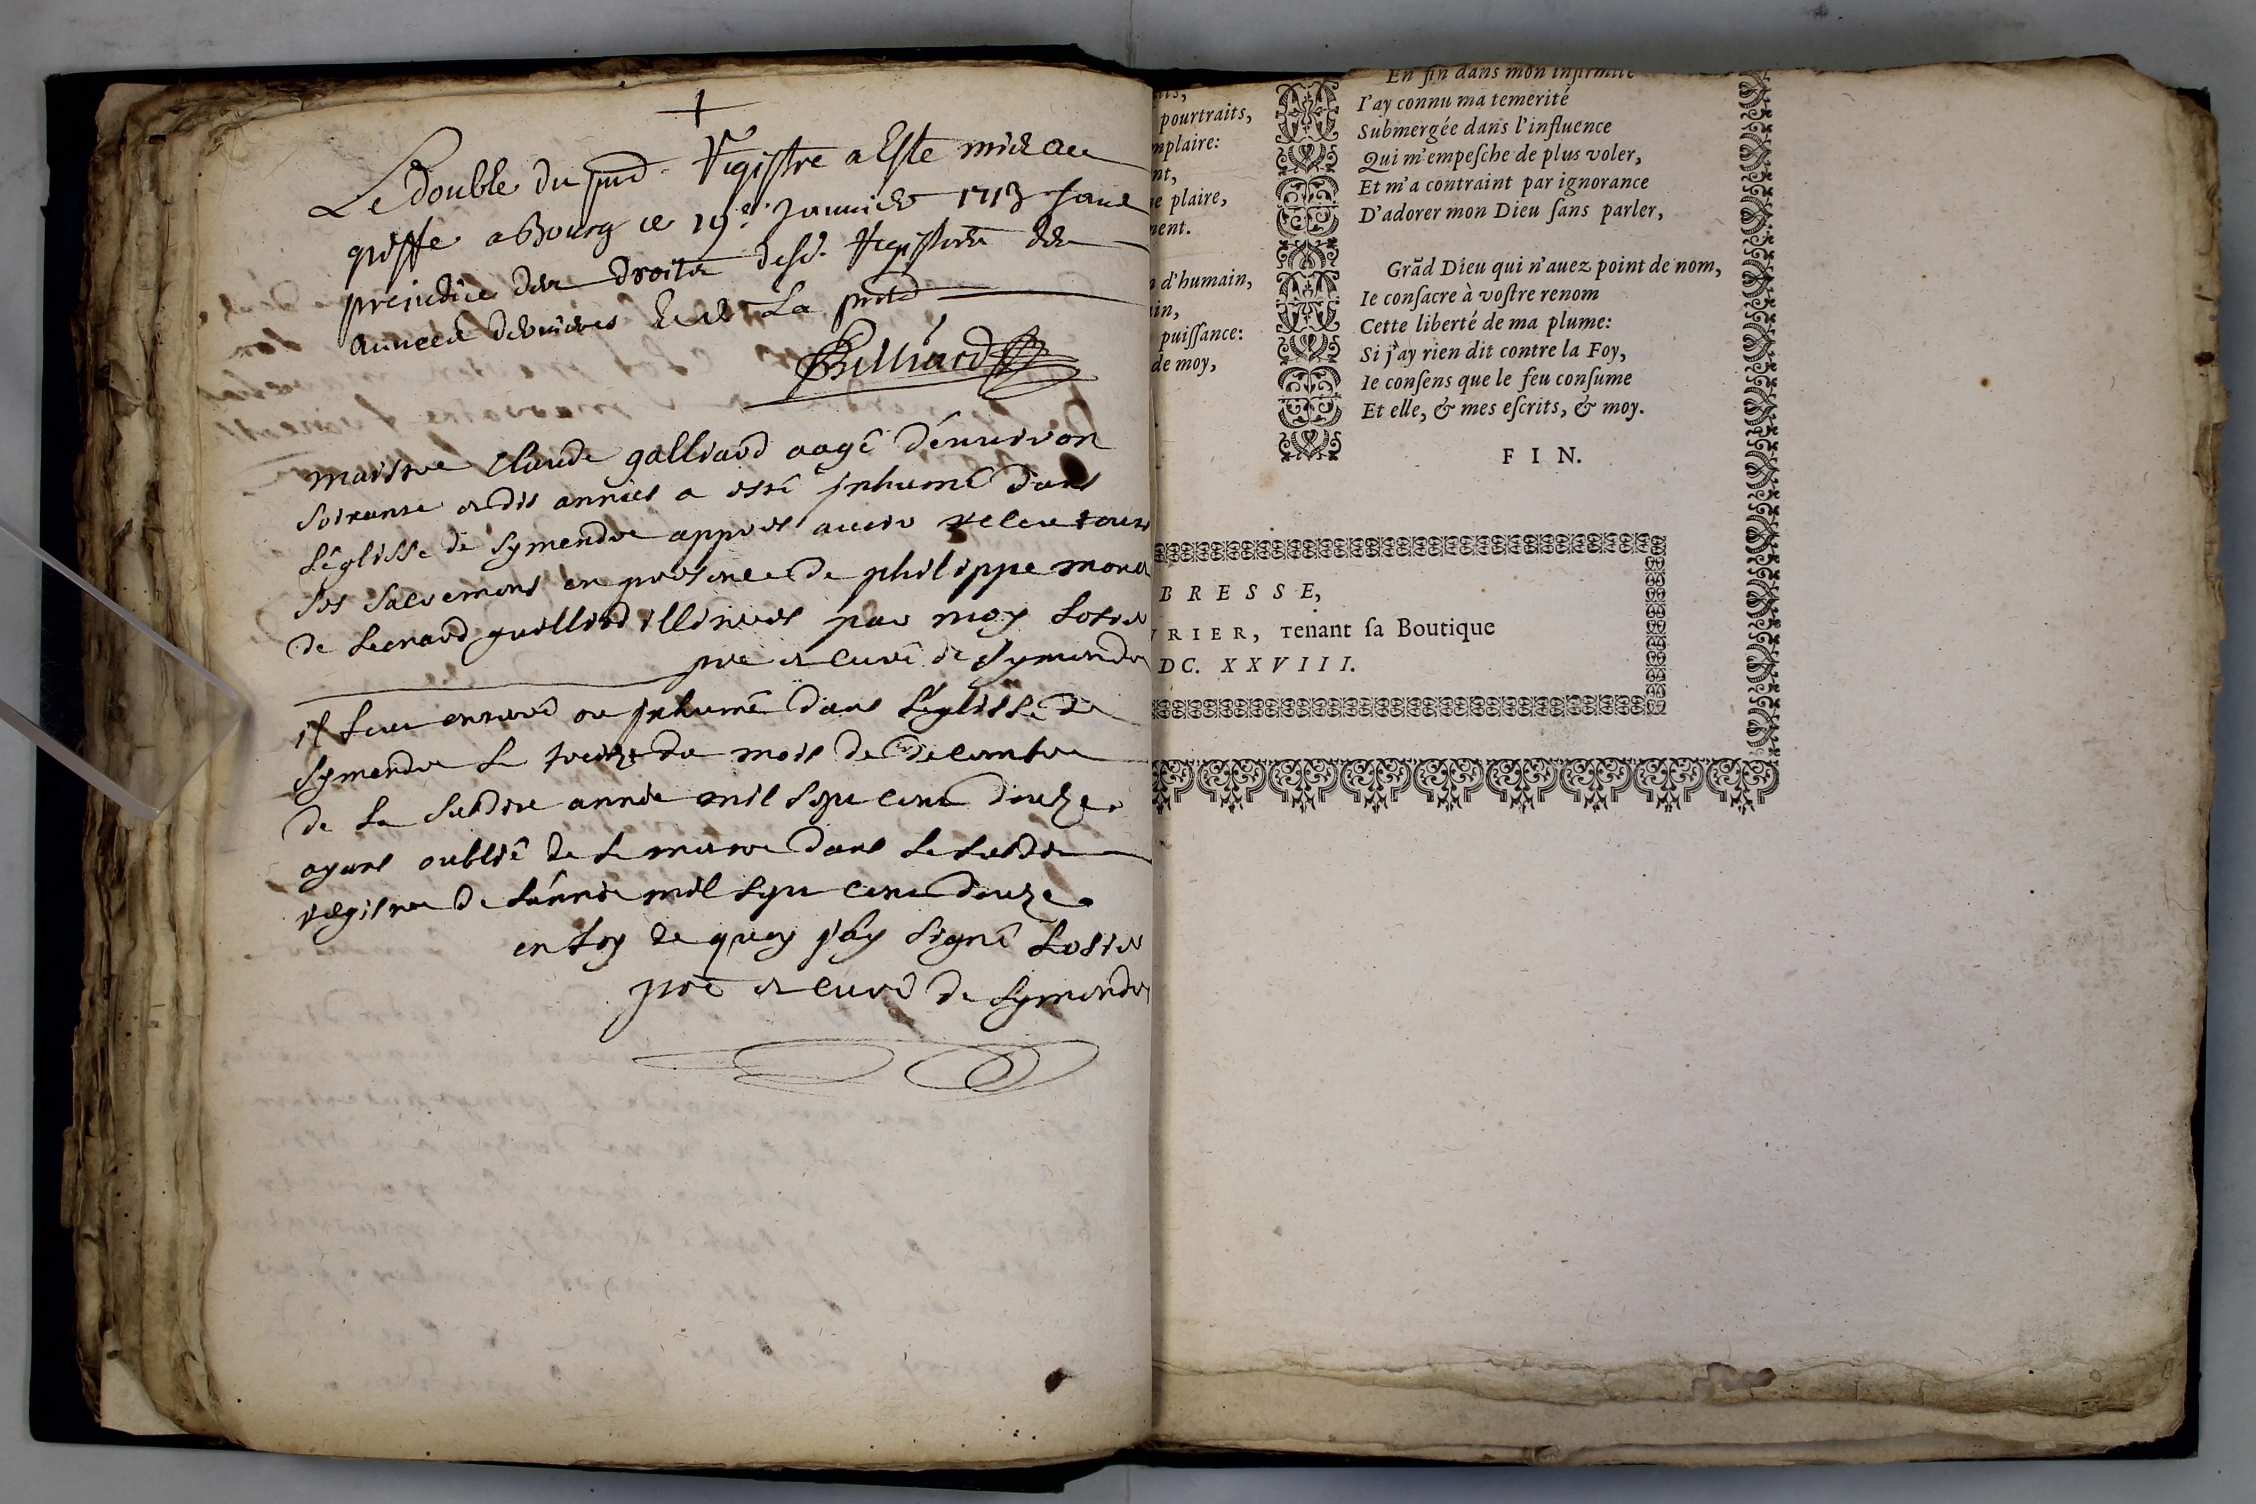 Le double du pnt Registre a Este mis au
greffe a Bourg ce 19e Janvier 1713 sans
prejudice des droits desd. Registres des
annees dernieres Et de La pnte
Billiard
maistre Claude galliard aagé d'enuiron
soixante et dix années a esté jnhumé dans
l'églisse de symandre appres auoir receu tous
ses sacremens en presence de philippe morel
de Leonard guilliod illiteres par moy
pre et curé de symandre
il feut enterré ou jnhumé dans l'églisse de
symandre le treize du mois de decembre
de la susdite année mil sept cent douze.
ayant oublié de le mettre dans le susdit
registre de l'année mil sept cent douze.
en foy de quoy j'ay signé
pre et curé de symandre
pourtraits,
mplaire:
nt,
e plaire,
nent.
d'humain,
ain,
puissance:
de moy,
En fin dans mon infirmité
I'ay connu ma temerité
Submergée dans l'influence
Qui m'empesche de plus voler,
Et m'a contraint par ignorance
D'adorer mon Dieu sans parler,
Grãd Dieu qui n'auez point de nom,
Ie consacre à vostre renom
Cette liberté de ma plume:
Si j'ay rien dit contre la Foy,
Ie consens que le feu consume
Et elle, & mes escrits, & moy.
FIN.
BRESSE,
VRIER, Tenant sa Boutique
DC. XXVIII.